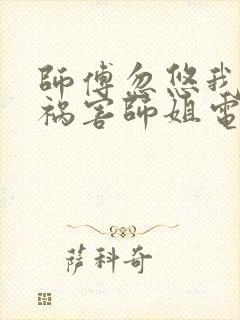 師傅忽悠我
祸害師姐電
萨科奇